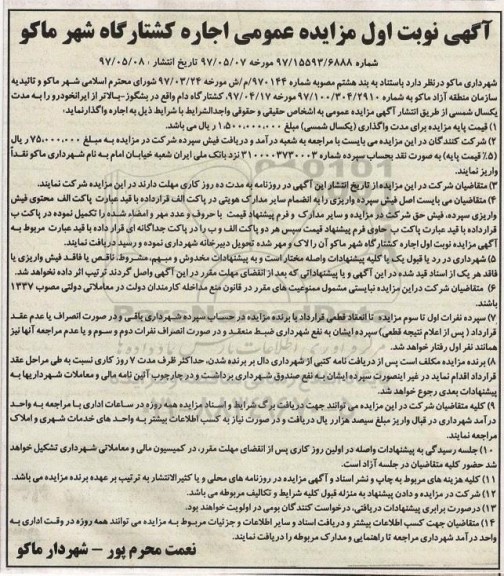 آگهی نوبت اول مزایده عمومی اجاره کشتارگاه شهر ماکو
شماره ۹۷/۱۵۵۹۳/۶۸۸۸ مورخه ۹۷/۰۵/۰۷ تاریخ انتشار : ۹۷/۰۵/۰۸
شهرداری ماکو درنظر دارد باستناد به بند هشتم مصوبه شماره ۹۷۰۱۴۴/م/ش مورخه ۹۷/۰۳/۲۴ شورای محترم اسلامی شهر ماکو و تائیدیه
سازمان منطقه آزاد ماکو به شماره ۹۷/۱۰۰/۳۰۴/۲۹۱۰ مورخه ۹۷/۰۴/۱۷، کشتار گاه دام واقع در بشگوز-بالاتر از ایرانخودرو را به مدت
یکسال شمسی از طریق انتشار آگهی مزایده عمومی به اشخاص حقیقی و حقوقی واجدالشرایط با شرایط ذیل به اجاره واگذارنماید:
۱) قیمت پایه مزایده برای مدت واگذاری (یکسال شمسی) مبلغ ۱,۵۰۰,۰۰۰,۰۰۰ ریال می باشد.
۲) شرکت کنندگان در این مزایده می بایست با مراجعه به شعبه درآمد و دریافت فیش سپرده شرکت در مزایده به مبلغ ۷۵,۰۰۰,۰۰۰ ریال
(۵٪ قیمت پایه) به صورت نقد بحساب سپرده شماره ۳۱۰۰۰۰۳۷۳۰۰۰۳ نزد بانک ملی ایران شعبه خیابان امام به نام شهرداری ماکو نقداً
واریز نمایند.
۳) متقاضیان شرکت در این مزایده از تاریخ انتشار این آگهی در روزنامه به مدت ده روز کاری مهلت دارند در این مزایده شرکت نمایند.
۴) متقاضیان می بایست اصل فیش سپرده واریزی را به انضمام سایر مدارک هویتی در پاکت الف قرارداده با قید عبارت پاکت الف محتوی فیش
واریزی سپرده، فیش حق شرکت در مزایده و سایر مدارک و فرم پیشنهاد قیمت با حروف و عدد مهر و امضاء شده را تکمیل نموده در پاکت ب
قرارداده با قید عبارت پاکت ب حاوی فرم پیشنهاد قیمت سپس هر دو پاکت الف و ب را در پاکت جداگانه ای قرار داده با قید عبارت مربوط به
آگهی مزایده نوبت اول اجاره کشتارگاه شهر ماکو آن را لاک و مهر شده تحویل دبیرخانه شهرداری نموده و رسید دریافت نمایند.
۵) شهرداری در رد یا قبول یک یا کلیه پیشنهادات واصله مختار است و به پیشنهادات مخدوش و مبهم، مشروط، ناقص یا فاقد فیش واریزی یا
فاقد هر یک از اسناد قید شده در این آگهی و یا پیشنهاداتی که بعد از انقضای مهلت مقرر در این آگهی واصل گردند ترتیب اثر داده نخواهد شد.
۶) متقاضیان شرکت دراین مزایده نبایستی مشمول ممنوعیت های مقرر در قانون منع مداخله کارمندان دولت در معاملاتی دولتی مصوب ۱۳۳۷
باشند.
۷) سپرده نفرات اول تا سوم مزایده تا انعقاد قطعی قرارداد با برنده مزایده در حساب سپرده شهرداری باقی و در صورت انصراف یا عدم عقد
قرارداد (پس از اعلام نتیجه قطعی) سپرده ایشان به نفع شهرداری ضبط منعقد و در صورت انصراف نفرات دوم و سوم و یا عدم مراجعه آنها نیز
همانند نفر اول رفتار خواهد شد.
۸) برنده مزایده مکلف است پس از دریافت نامه کتبی از شهرداری دال بر برنده شدن، حداکثر ظرف مدت ۷ روز کاری نسبت به طی مراحل عقد
قرارداد اقدام نماید در غیر اینصورت سپرده ایشان به نفع صندوق شهرداری برداشت و در چارچوب آئین نامه مالی و معاملات شهرداریها به
پیشنهادات بعدی رجوع خواهد شد.
۹) کلیه متقاضیان شرکت در این مزایده می توانند جهت دریافت برگ شرایط و اسناد مزایده همه روزه در ساعات اداری با مراجعه به واحد
درآمد شهرداری در قبال واریز مبلغ سیصد هزار ریال دریافت و در صورت نیاز به کسب اطلاعات بیشتر به واحد های خدمات شهری و املاک
مراجعه نمایند.
۱۰) جلسه رسیدگی به پیشنهادات واصله در اولین روز کاری پس از انقضای مهلت مقرر، در کمیسیون مالی و معاملاتی شهرداری تشکیل خواهد
شد حضور کلیه متقاضیان در جلسه آزاد است.
۱۱) کلیه هزینه های مربوط به چاپ و نشر اسناد و آگهی مزایده در روزنامه های محلی و یا کثیرالانتشار به ترتیب بر عهده برنده مزایده می باشد.
۱۲) شرکت در مزایده و دادن پیشنهاد به منزله قبول کلیه شرایط و تکالیف مربوطه می باشد.
۱۳) درصورت برابری پیشنهادات دریافتی، درخواست کنندگان بومی در اولویت خواهند بود.
۱۴) متقاضیان جهت کسب اطلاعات بیشتر و دریافت اسناد و سایر اطلاعات و جزئیات مربوط به مزایده می توانند همه روزه در وقت اداری به
واحد درآمد شهرداری مراجعه تا راهنمایی و مدارک مربوطه را دریافت نمایند.
نعمت محرم پور – شهردار ماکو